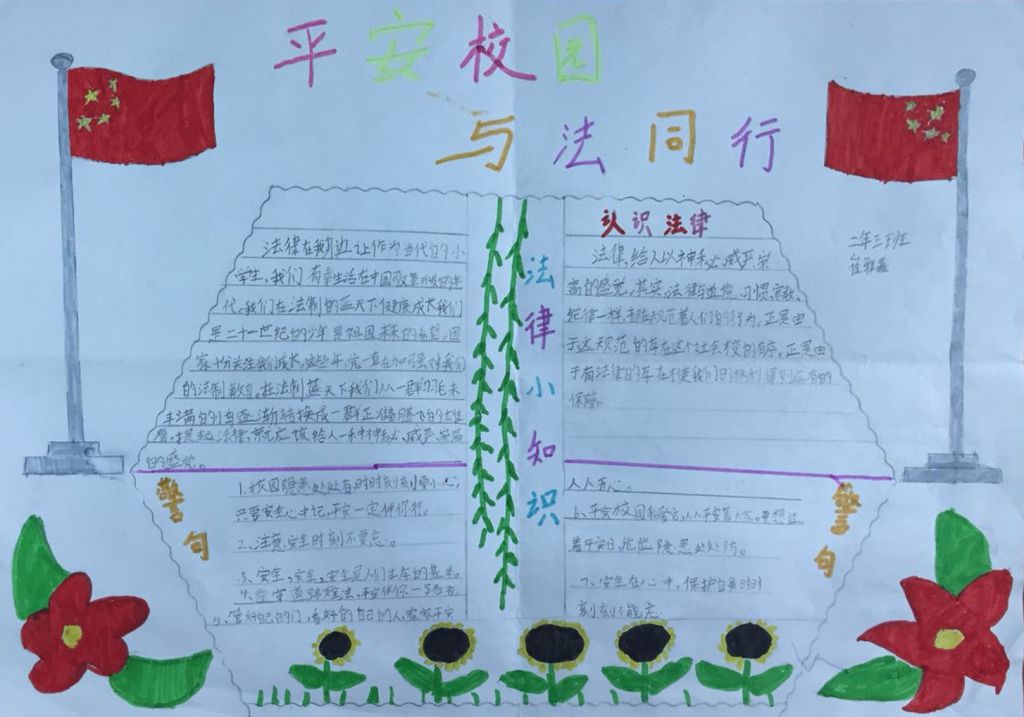 平安校园
与法同行
二年三班
法律小知识
法律在我们身边让作为当代的小
学生,我们有幸生活在中国改革开放的年
代,我们在法制的蓝天下健康成长我们
是二十一世纪的少年是祖国未来的希望,国
家十分关注我们成长,这些年,党一直在加强对我们
的法制教育。在法制蓝天下我们从一群羽毛未
丰满的小鸟逐渐转换成一群正
提起法律,就应该给人一种神秘、威严、崇高
的感觉。
认识法律
法律,给人以神秘、威严、崇
高的感觉,其实,法律与道德、习惯、宗教、
纪律一样都是规范着人们的行为。正是由
于这规范的存在这个社会
正是由
于有法律的存在才使我们的权利得到应有的
保障。
警句
1、校园隐患处处有时时刻刻要小心,
只要安全心中记,平安一定伴你行。
2、注意安全时刻不要忘。
3、安全,安全,安全是人们生存的基本。
5、管好自己的门,看好自己的人,家家平安
人人开心。
警句
6、平安校园
危险隐患处处防。
7、安全在心中,保护自身时时
刻刻不能忘